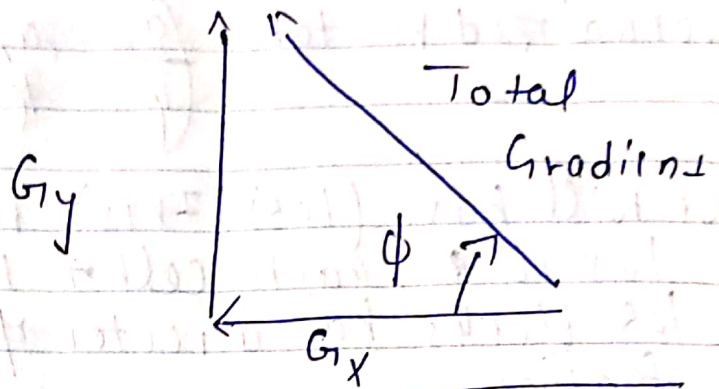 Total
Gradient
Gy
ϕ
Gx